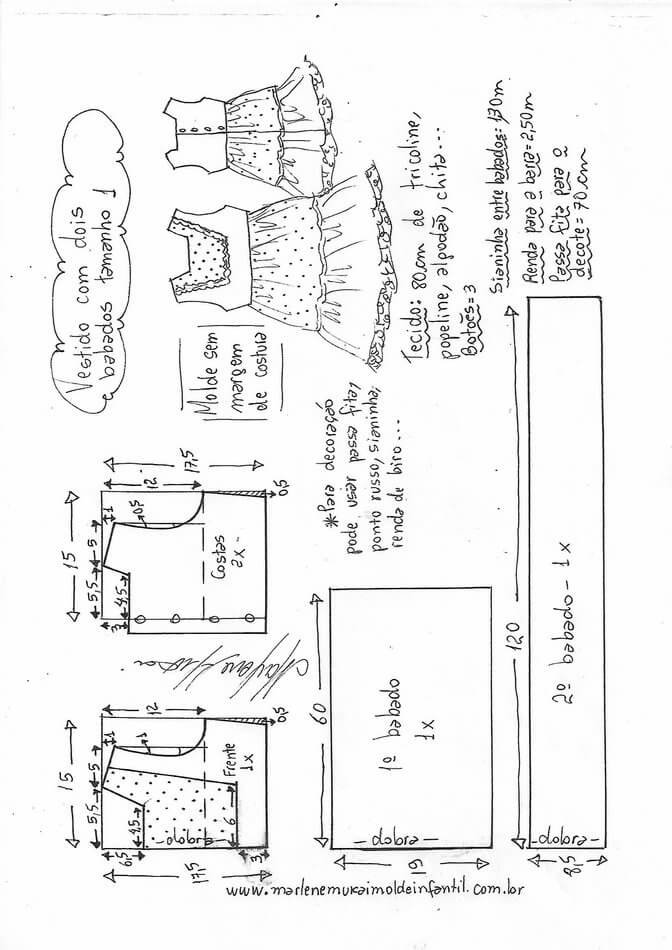 Vestido com dois
babados tamanho 1
Molde sem
margem
de costura
Tecido: 80cm de tricoline,
popeline, algodão, chita...
Botões = 3
Sianinha entre babados: 1,30m
Renda para a barra = 2,50m
Passa fita para o
decote = 70 cm
*Para decoração
pode usar passa fita,
ponto russo, sianinha,
renda de biro...
15
5,5
5
1
12
17,5
0,5
4,5
3
Costas
2x
0,5
15
5,5
5
1
12
1
4,5
6,5
17,5
Frente
1x
6
3
0,5
dobra
60
1º babado
1x
dobra
19
120
2º babado - 1x
dobra
8,5
www.marlenemukaimoldeinfantil.com.br